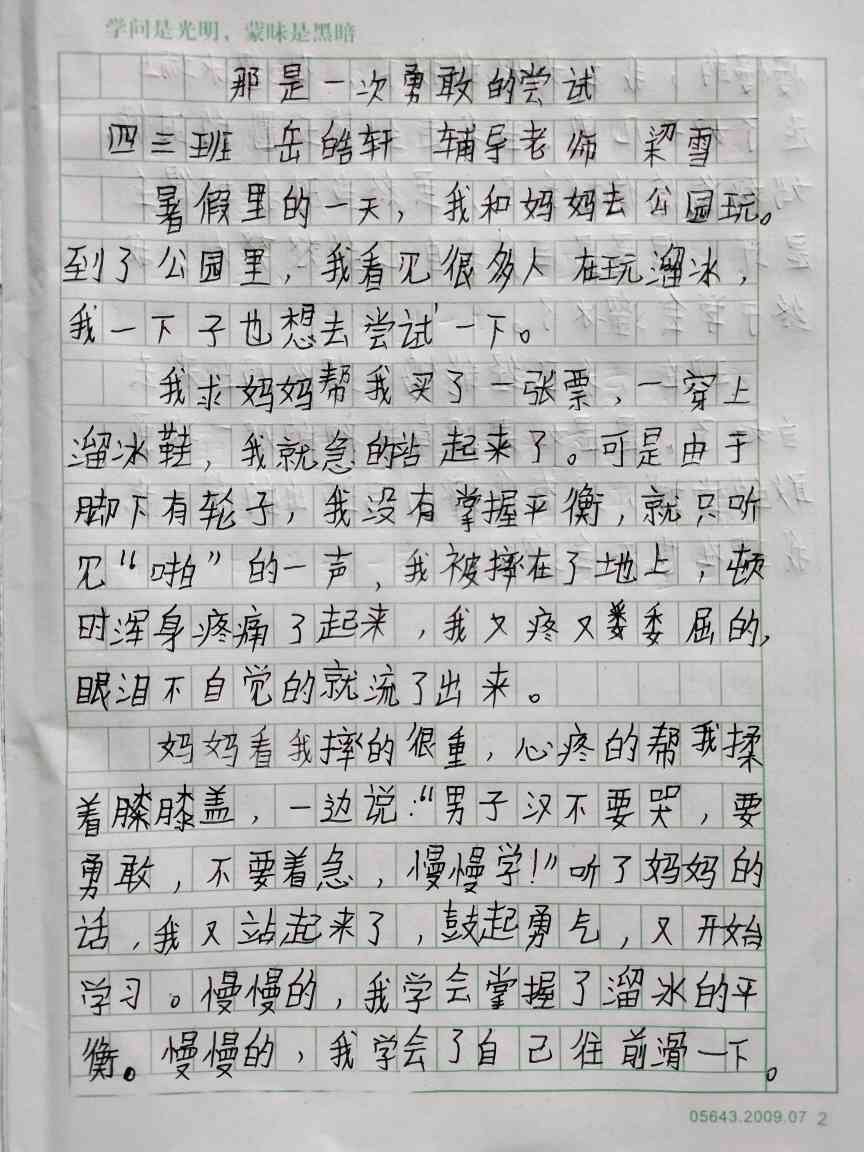 学问是光明，蒙昧是黑暗
那是一次勇敢的尝试
四三班 岳皓轩 辅导老师 梁雪
暑假里的一天，我和妈妈去公园玩。
到了公园里，我看见很多人在玩溜冰，
我一下子也想去尝试一下。
我求妈妈帮我买了一张票，一穿上
溜冰鞋，我就急的站起来了。可是由于
脚下有轮子，我没有掌握平衡，就只听
见“啪”的一声，我被摔在了地上，顿
时浑身疼痛了起来，我又疼又委屈的，
眼泪不自觉的就流了出来。
妈妈看我摔的很重，心疼的帮我揉
着膝膝盖，一边说：“男子汉不要哭，要
勇敢，不要着急，慢慢学！”听了妈妈的
话，我又站起来了，鼓起勇气，又开始
学习。慢慢的，我学会掌握了溜冰的平
衡。慢慢的，我学会了自己往前滑一下。
05643.2009.07 2